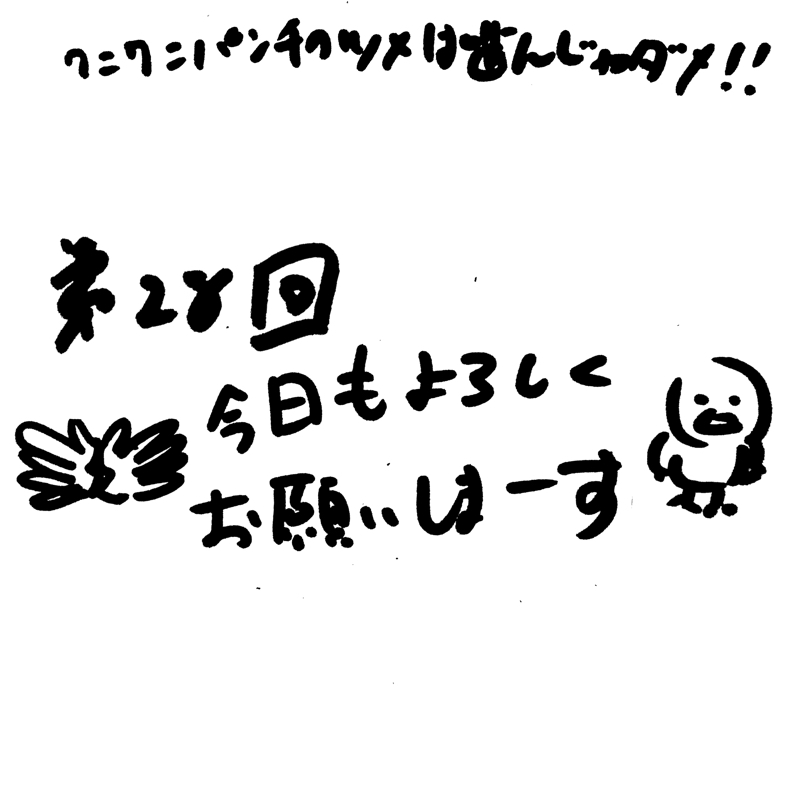 ワニワニパンチのツメは歯んじゃダメ!!
第28回
今日もよろしく
お願いしまーす